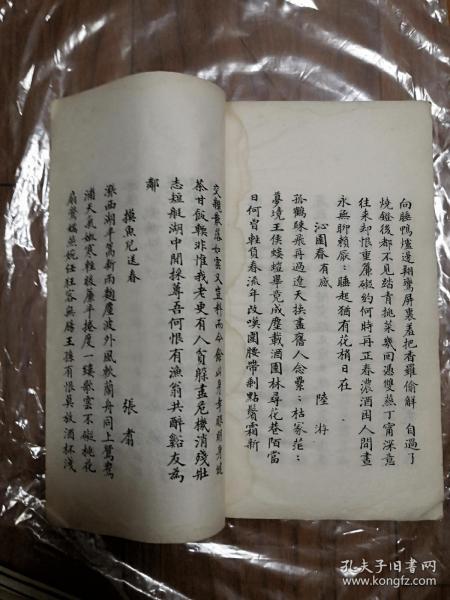 向睡鴨爐邊翔鸞屏裏羞把香羅偷解 自過了
燒燈後都不見踏青挑菜幾回憑雙燕丁甯深意
往來却恨重簾礙約何時再正春濃酒困人間晝
永無聊賴厭厭睡起猶有花梢日在
沁園春有感
陸游
孤鶴歸飛再過遼天換盡舊人念纍纍枯冢茫茫
夢境王侯螻蟻畢竟成塵載酒園林尋花巷陌當
日何曾輕負春流年改嘆圍腰帶剩點鬢霜新
交親散落如雲又豈料而今餘此身幸眼明身健
茶甘飯輭非惟我老更有人貧躲盡危機消殘壯
志短艇湖中閒採蓴吾何恨有漁翁共醉谿友為
鄰
摸魚兒送春
張翥
漲西湖半篙新雨麴塵波外風軟蘭舟同上鴛鴦
浦天氣嫩寒輕煖簾半捲度一縷歌雲不礙桃花
扇鶯嬌燕婉任狂客無腸王孫有恨莫放酒杯淺
孔夫子旧书网
www.kongfz.com